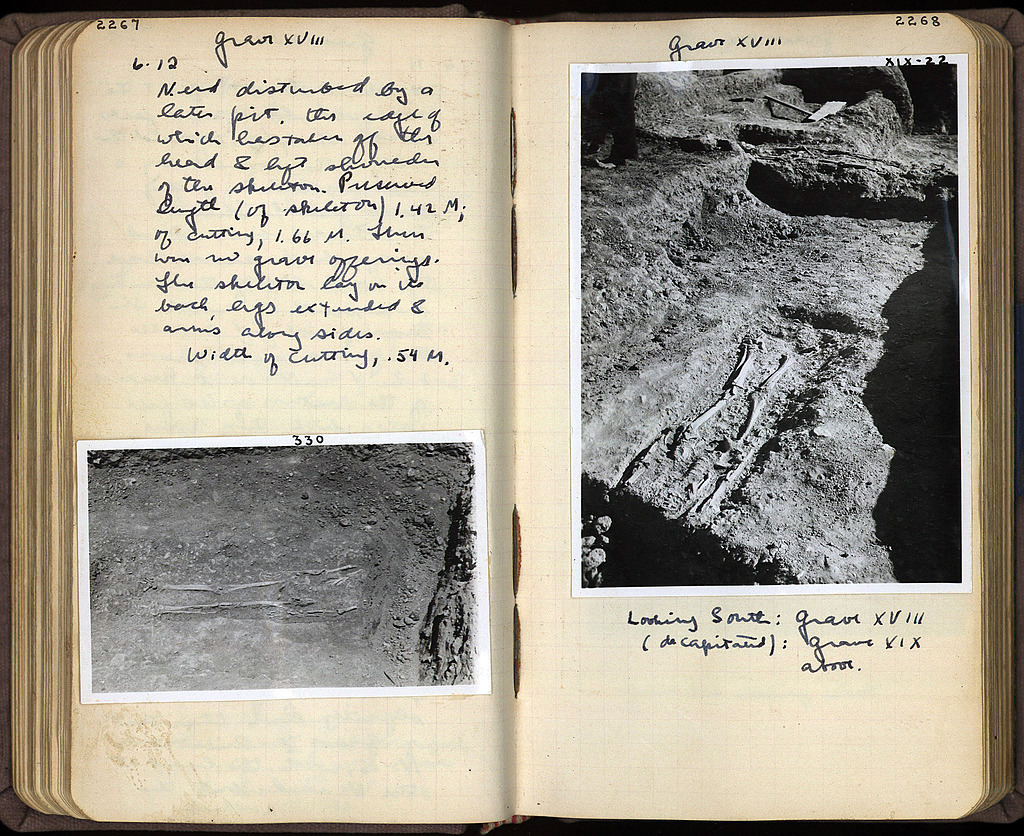 2267
Grave XVIII
6.12
N. end disturbed by a
later pit, the edge of
which has taken off the
head & left shoulder
of the skeleton. Preserved
length (of skeleton) 1.42 M;
of cutting, 1.66 M. There
was no grave offerings.
The skeleton lay on its
back, legs extended &
arms along sides.
Width of cutting, .54 M.
330
2268
Grave XVIII
XIX-22
Looking South: Grave XVIII
(decapitated): Grave XIX
above.